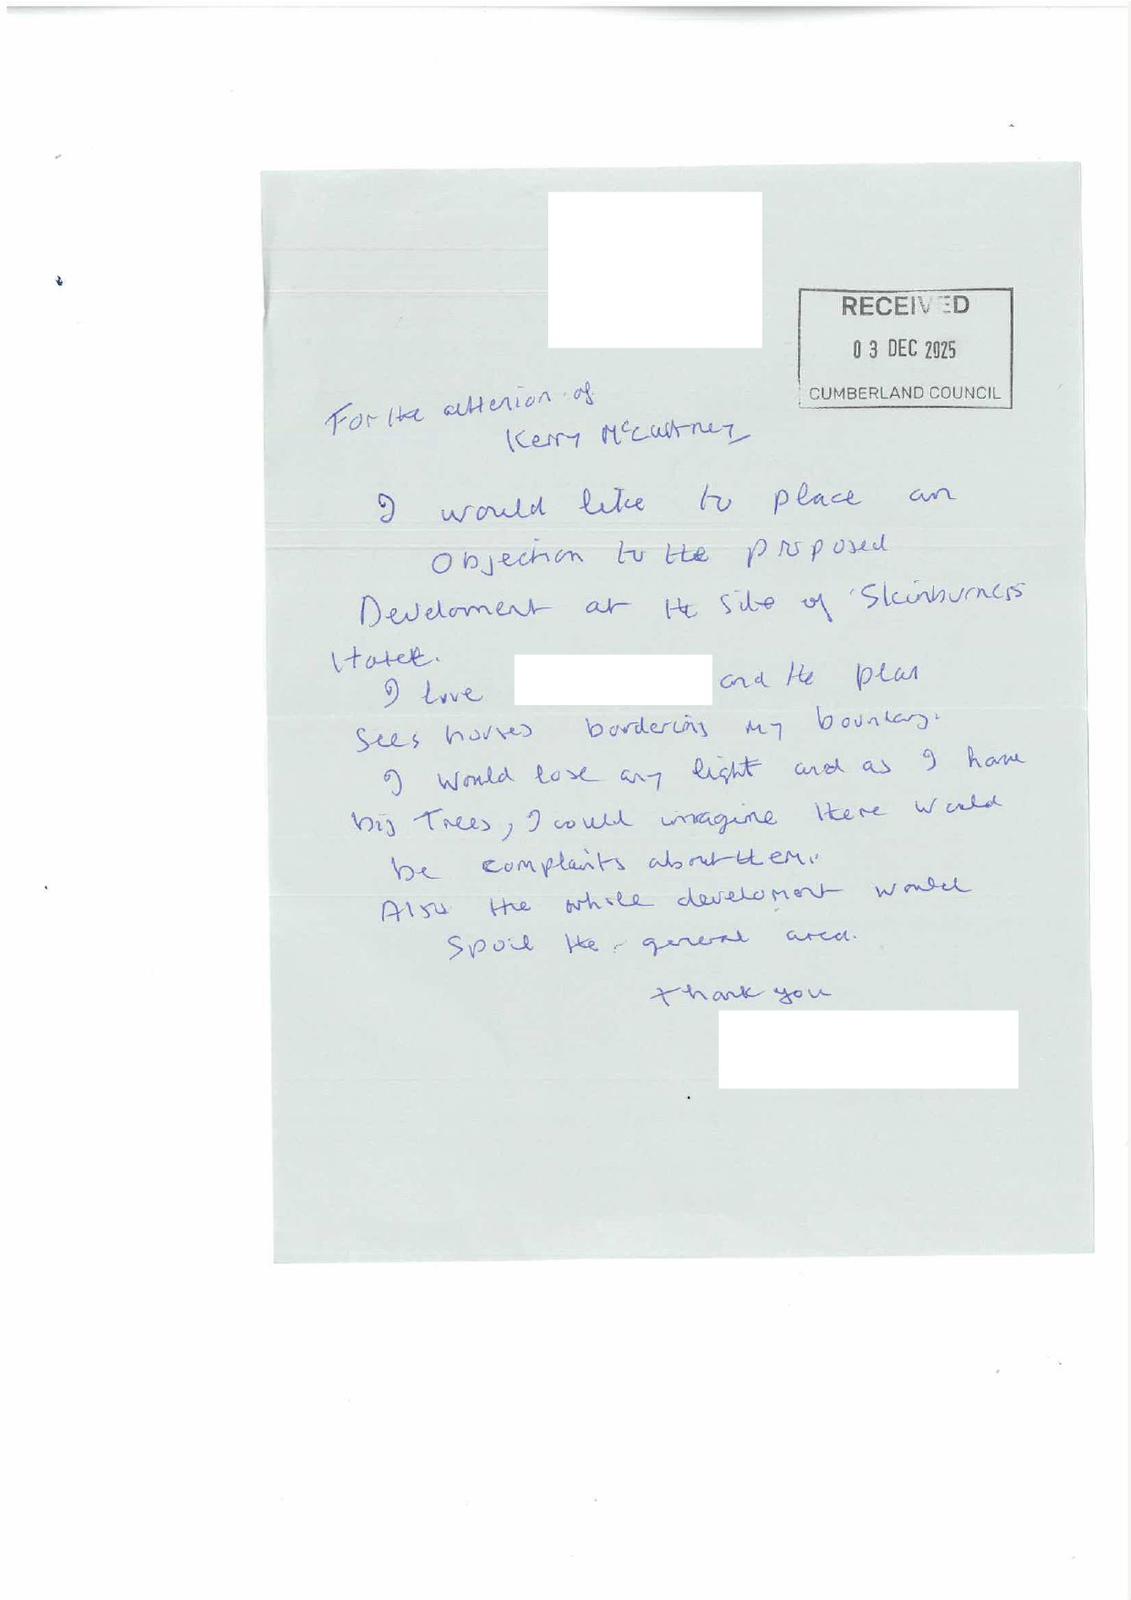 RECEIVED
03 DEC 2025
CUMBERLAND COUNCIL
For the attention of
Kerry McCartney
I would like to place an
Objection to the proposed
Develoment at the site of Skinburness
Hotel.
I live and the plan
sees houses bordering my boundary.
I would lose any light and as I have
big Trees, I could imagine there would
be complaints about them.
Also the whole develoment would
Spoil the general area.
Thank you